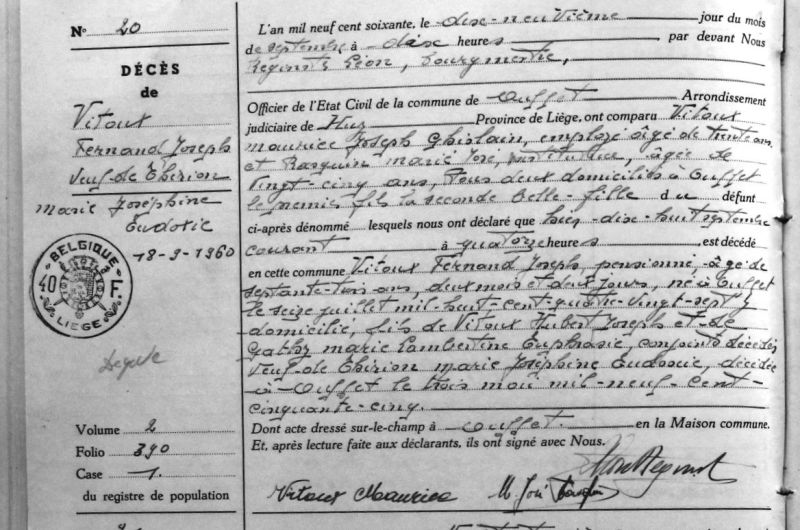 N° 20
DÉCÈS
de
Vitoux
Fernand Joseph
Veuf de Thirion
Marie Joséphine
Eudoxie
18-9-1960
BELGIQUE
40 F.
LIEGE
Volume 2
Folio 390
Case 1.
du registre de population
L'an mil neuf cent soixante, le dix-neuvième jour du mois
de septembre à dix heures par devant Nous
Léon, Bourgmestre,
Officier de l'Etat Civil de la commune de Ouffet Arrondissement
judiciaire de Huy Province de Liège, ont comparu Vitoux
Maurice Joseph Ghislain, employé âgé de trente ans
et Rasquin Marie José, institutrice, âgée de
vingt-cinq ans, tous deux domiciliés à Ouffet
le premier fils la seconde belle-fille du défunt
ci-après dénommé lesquels nous ont déclaré que hier dix-huit septembre
courant à quatorze heures, est décédé
en cette commune Vitoux Fernand Joseph, pensionné, âgé de
septante-trois ans, deux mois et deux jours, né à Ouffet
le seize juillet mil huit-cent-quatre-vingt-sept y
domicilié, fils de Vitoux Hubert Joseph et de
Gathy Marie Lambertine Euphrasie, conjoints décédés
veuf de Thirion Marie Joséphine Eudoxie, décédée
à Ouffet le trois mai mil-neuf-cent-
cinquante-cinq.
Dont acte dressé sur-le-champ à Ouffet. en la Maison commune.
Et, après lecture faite aux déclarants, ils ont signé avec Nous.
Vitoux Maurice M. José